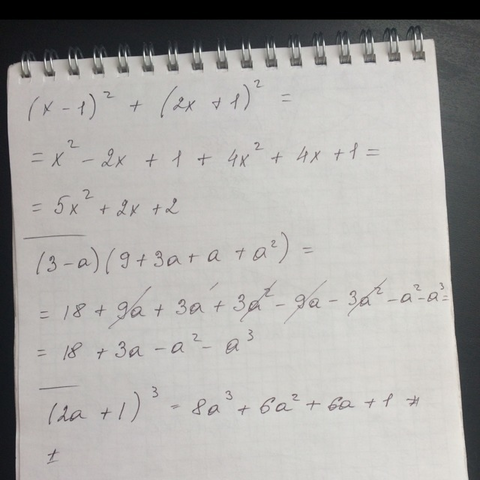 (x-1)² + (2x+1)² =
= x² - 2x + 1 + 4x² + 4x + 1 =
= 5x² + 2x + 2
(3-a)(9+3a+a+a²) =
= 18 + 9a + 3a + 3a² - 9a - 3a² - a² - a³ =
= 18 + 3a - a² - a³
(2a+1)³ = 8a³ + 6a² + 6a + 1